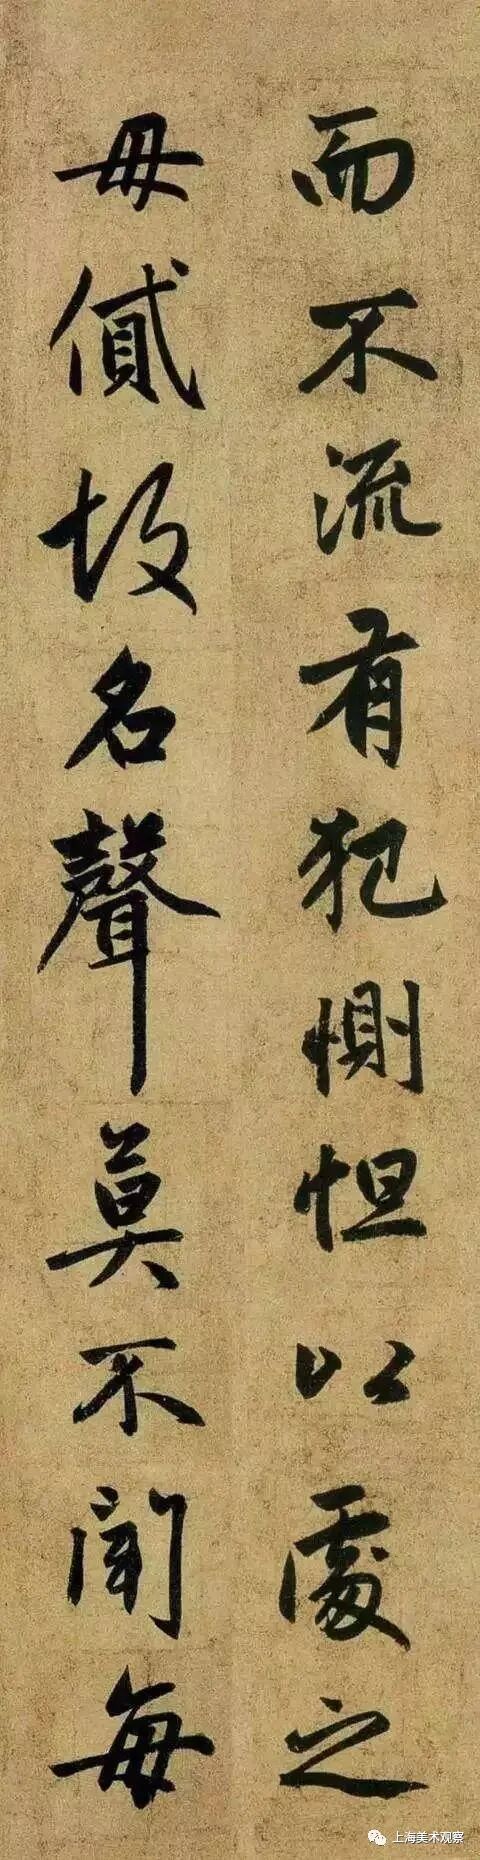 而不流有犯惻怛以處之
毋貳故名聲莫不聞每
上海美术观察